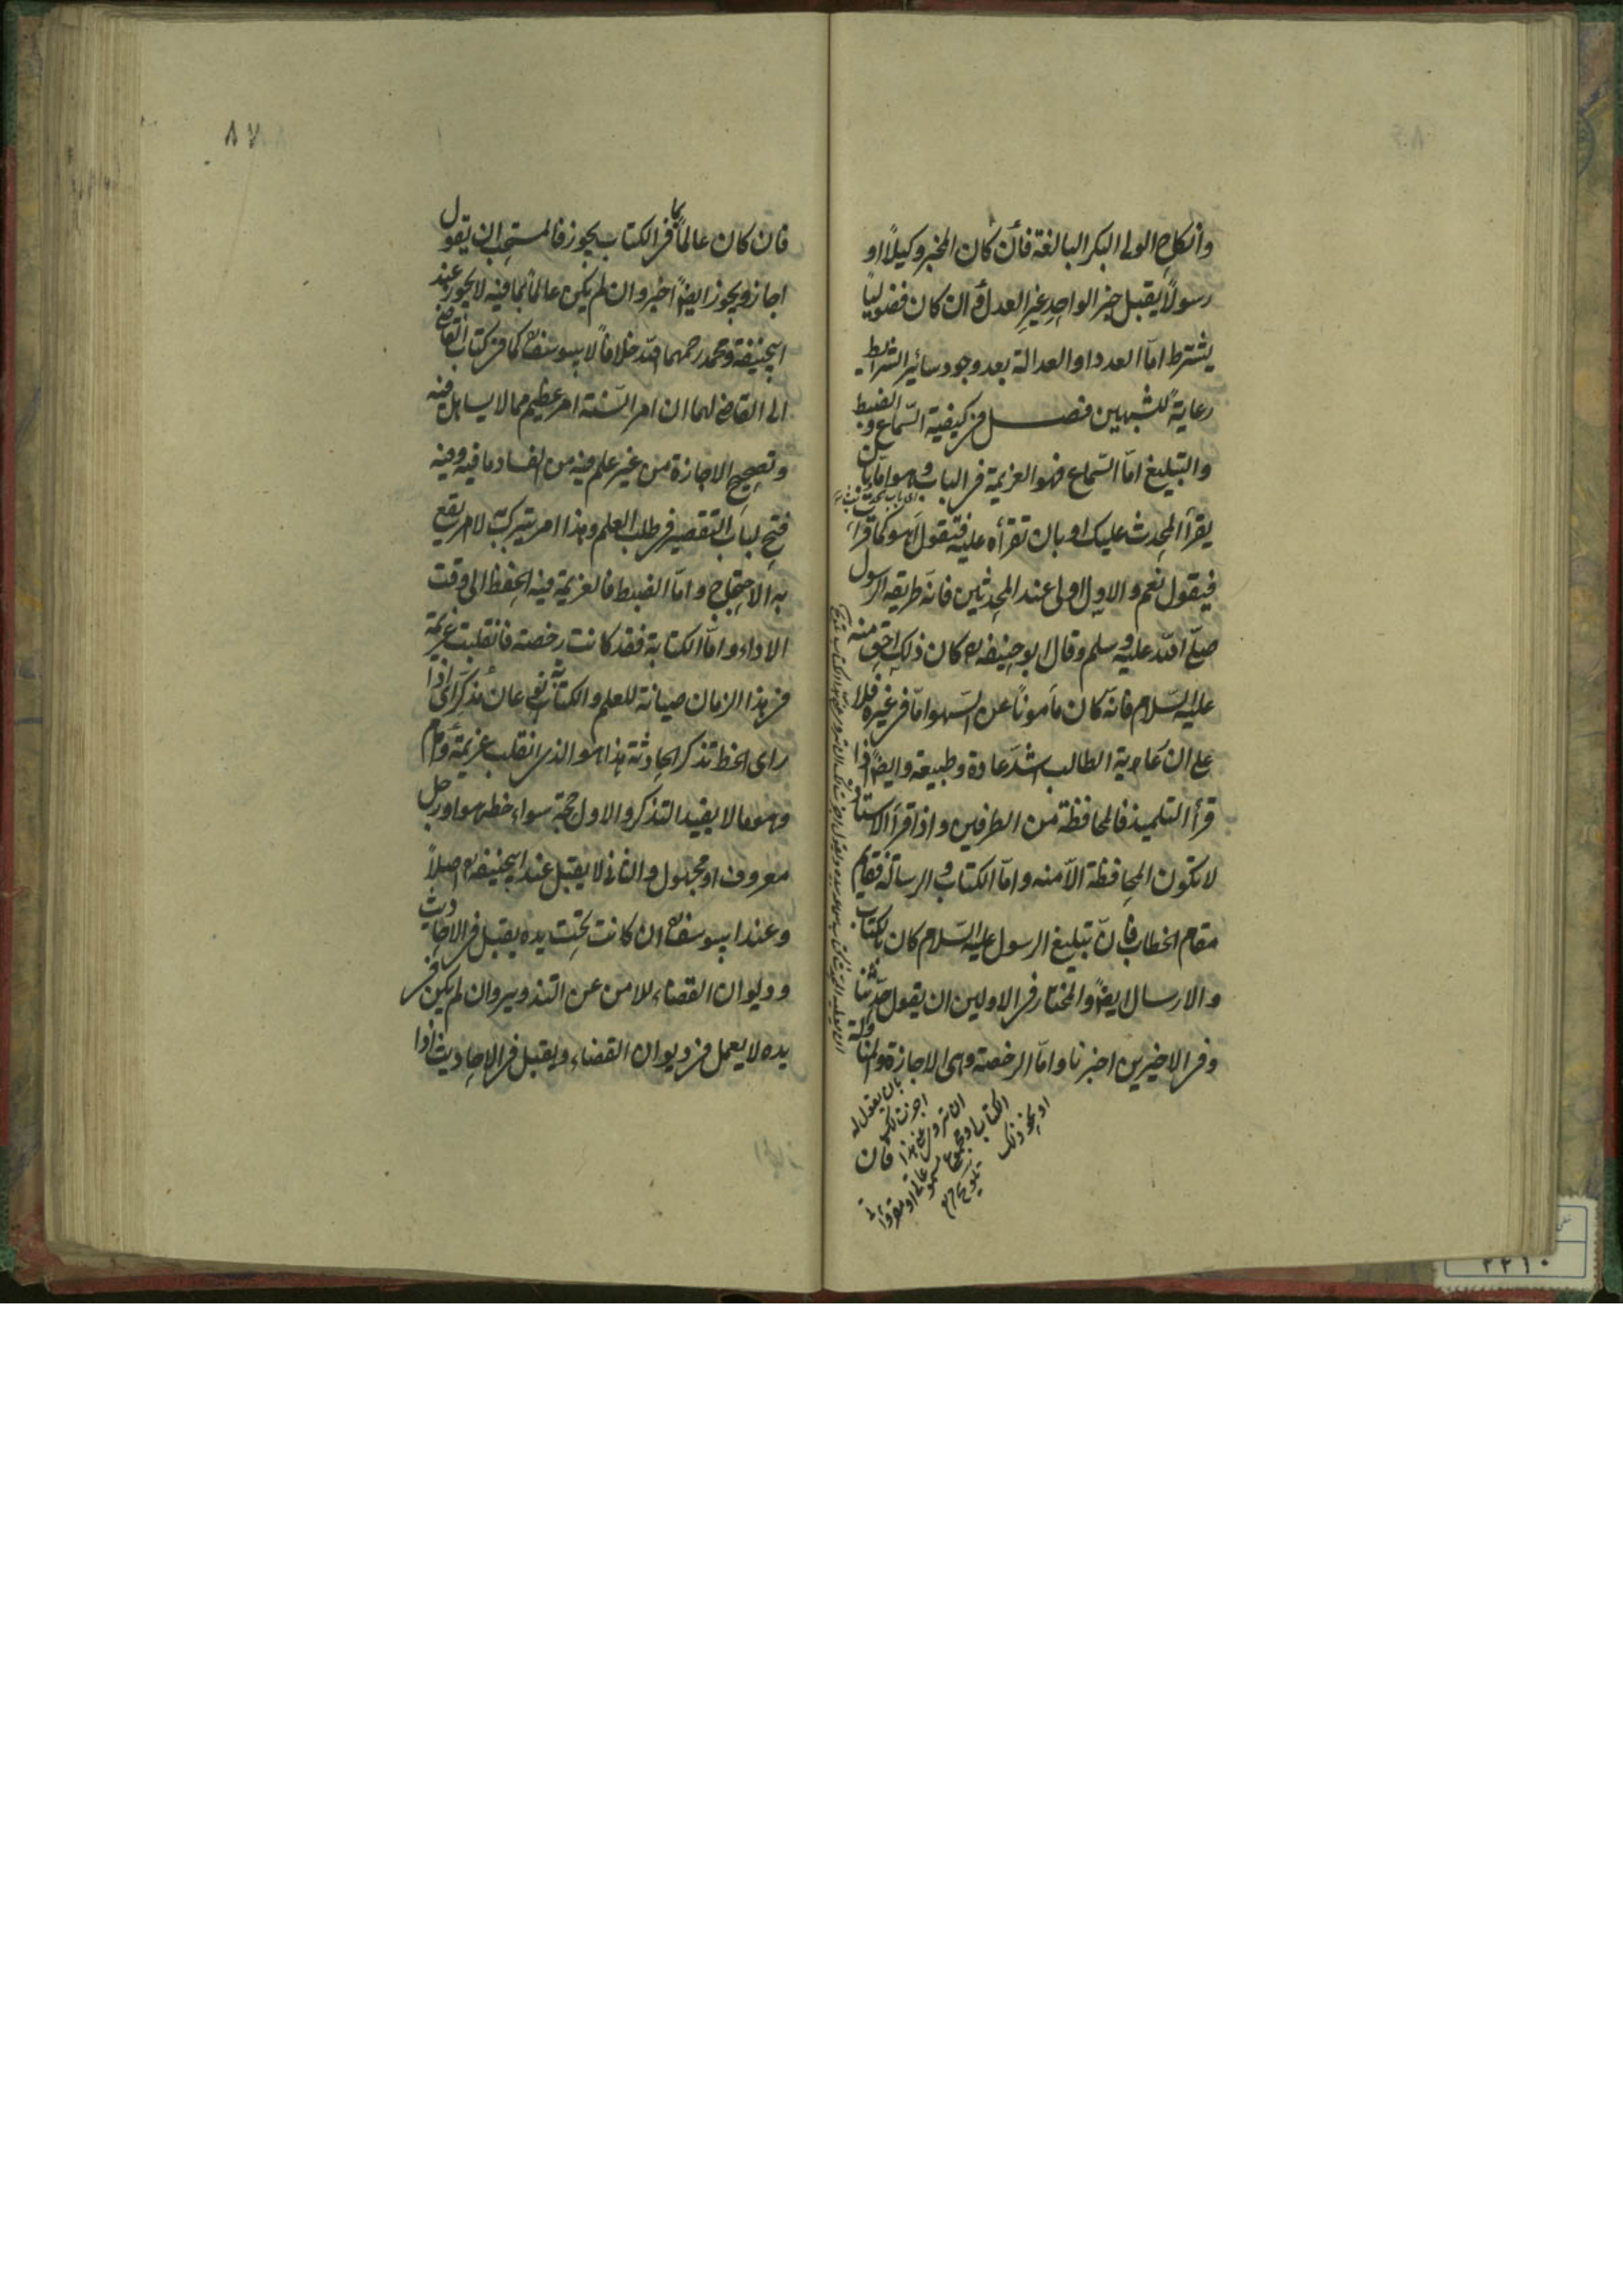 وانكاح الولى البكر البالغة فأن كان المخبر وكيلاً او
رسولاً يقبل خبر الواحد غير العدل وان كان فضولياً
يشترط امّا العدد او العدالة بعد وجود سائر الشرائط
رعاية للشبهين فصل فى كيفية السّماع والضبط
والتبليغ امّا السّماع فهو العزيمة فى الباب وهو امّا بان
يقرأ المحدث عليك او بان تقرأه عليه فتقول أهو كما قرأت
فيقول نعم والاول اولى عند المحدثين فانّه طريقه الرسول
صلّى الله عليه وسلم وقال ابو حنيفه رح كان ذلك احق منه
عليه السّلام فانّه كان مأموناً عن السّهو امّا فى غيره فلا
على ان رعاية الطالب اشدّ عادة وطبيعة وايضاً اذا
قرأ التلميذ فالمحافظة من الطرفين واذا قرأ الاستاد
لا تكون المحافظة الاّ منه وامّا الكتاب والرسالة فقام
مقام الخطاب فانّ تبليغ الرسول عليه السّلام كان بالكتاب
والارسال ايضاً والمختار فى الاولين ان يقول حدّثنا
وفى الاخيرين اخبرنا وامّا الرخصة وهى الاجازة والمناولة
بان يقول له
اجزت لك
ان تروى عنى هذا
الكتاب او مجموع
او نحو ذلك
تلويح
فان
٨٧
فان كان عالماً بما فى الكتاب يجوز فالمستحب ان يقول
اجاز ويجوز ايضاً اخبر وان لم يكن عالماً بما فيه لا يجوز عند
ابيحنيفة ومحمد رحمهما الله خلافاً لابيوسف رح كما فى كتاب القاضى
الى القاضى لهما ان امر السّنة امر عظيم مما لا يساهل فيه
وتصحيح الاجازة من غير علم فيه من الفساد ما فيه وفيه
فتح لباب التقصير فى طلب العلم وهذا امر يتبرك به لا امر يقع
به الاحتجاج وامّا الضبط فالعزيمة فيه الحفظ الى وقت
الاداء وامّا الكتابة فقد كانت رخصة فانقلبت عزيمة
فى هذا الزمان صيانة للعلم والكتابة نوعان مذكّر اى اذا
راى الخط تذكر الحادثة هذا هو الذى انقلب عزيمة وامام
وهو ما لا يفيد التذكر والاول حجة سواء خطه هو او رجل
معروف او مجهول والثانى لا يقبل عند ابيحنيفه رح اصلاً
وعند ابيوسف رح ان كانت تحت يده يقبل فى الاحاديث
وديوان القضاء للامن عن التزوير وان لم يكن فى
يده لا يعمل فى ديوان القضاء ويقبل فى الاحاديث اذا